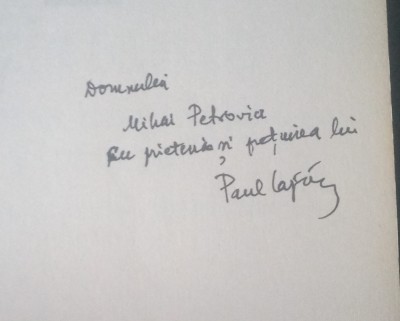 Domnului
Mihai Petrovici
cu prietenia și prețuirea lui
Paul